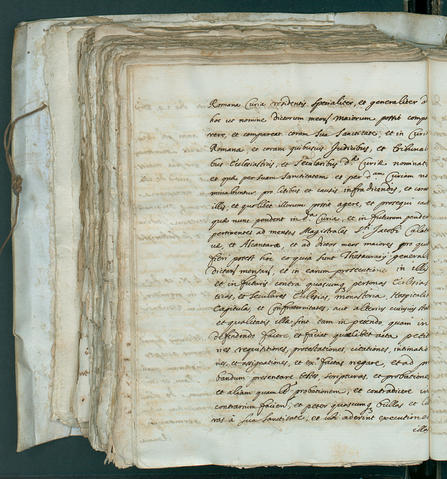 Romana Curia residentis specialiter, et generaliter
hoc us nomine dictorum mens maiorum possit comp
rere, et compareat coram Sua Sanctitate; et in Curi
Romana, et coram quibusuis Judicibus, et Tribunali
bus Ecclesiasticis, et Secularibus Curiæ nominat
et quos per Suam Sanctitatem et per Curiam no
minabuntur pro litibus et causis infradicendis, et coram
illis, et quolibet illorum possit agere, et prosequi cau
quæ nunc pendent in Curia, et in futurum pendeb
pertinentes ad mensas Magistrales Jacobi Calat
væ, et Alcantaræ, et ad dictos mens maiores pro quo
fieri potest hoc eo quia sunt Thesaurarij generales
dictarum mensarum, et in earum prosecutione in illis
et in futuris contra quascumque personas Ecclesias
ticas, et Seculares Ecclesias, monasteria, Hospitalia
Capitula, et Confraternitates, aut alterius cuiusuis stat
et qualitatis illæ sint tam in petendo quam in
defendendo facere, et faciat quælibet acta, petitio
nes, requisitiones, protestationes, citationes, intimatio
nes, et assignationes, et factas negare, et ad pro
bandum presentare testes, scripturas, et probationes
et aliam quamlibet probationem, et contradicere in
contrarium facien, et petere quascumque bullas et li
ras a sua Sanctitate, et ubi aderint executione
illa